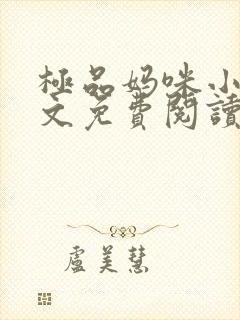 極品妈咪小
文免費閱讀
盧美慧